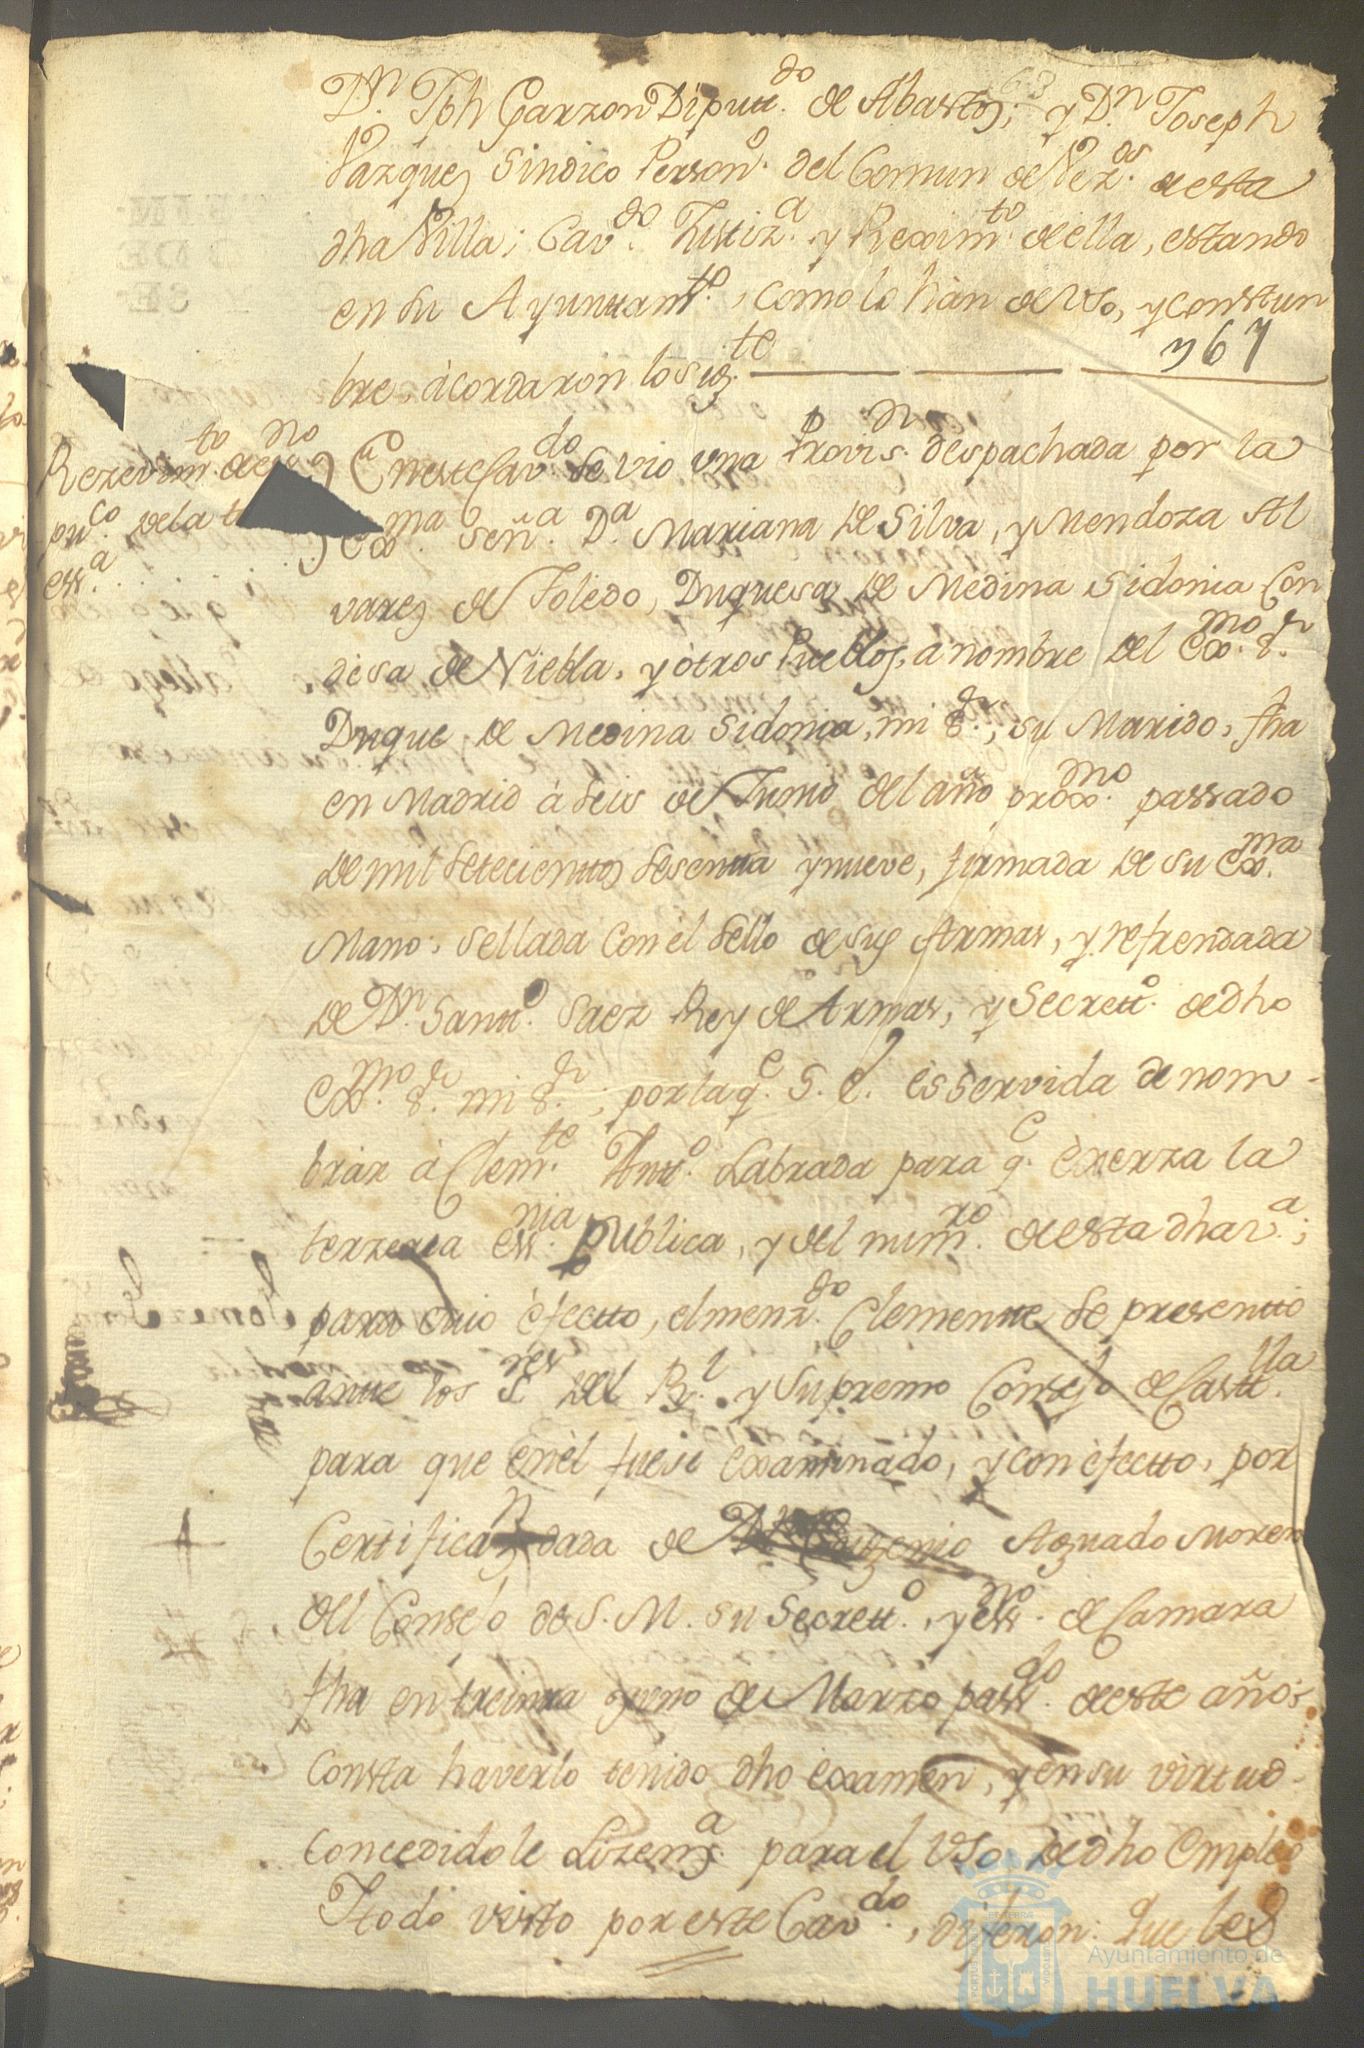 63
Dn. Jph Garzon Diputtdo. de Abastos; y Dn. Joseph
Vazquez Sindico Persono. del Comun de Vezos. de esta
dha Villa; Cavdo. Justiza. y Reximto. de ella, estando
en su Ayunttamto., como lo hàn de Uso, y constum
bre, àcordaron lo sigte.
367
Rezevimto. de esno
puco. de la t
essa.
En este Cavdo. se vio una Provisn. despachada por la
Exma. Señа. Da. Mariana de Silva, y Mendoza Al
varez de Toledo, Duquesa de Medina Sidonia Con
desa de Niebla, y òtros Pueblos, a nombre del Exmo. Sr.
Duque de Medina Sidonia, mi Sr., su Marido, fha
en Madrid à seis de Junio del año proxmo. passado
de mil setecienttos sesentta y nueve, firmada de su Exma.
Mano, sellada con èl sello de sus Armas, y refrendada
de Dn. Santto. Saez Rey de Armas, y Secretto. de dho
Exmo. Sr. mi Sr.; por la qe. S. E. ès servida de nom-
brar à Clemte. Antto. Labrada para qe. èxerza la
terzera essnia. publica, y del numro. de esta dha va.;
para cuio èfectto, el menzdo. Clementte se presentto
antte los Sres. del Rl. y Supremo Consejo de Casttlla.
para que en èl fuese examinado, y con èfectto, por
Certificazn dada de Dn. Eugenio Aguado Moren
del Consejo de S. M. su Secretto., y essno. de Camara
fha en treintta y uno de Marzo passdo. de este año,
consta haverlo tenido dho examen, y en su virtud
concedidole Lizenza para el Uso de dho Empleo
Y todo visto por este Cavdo., dijeron: Que les
Ayuntamiento de
HUELVA